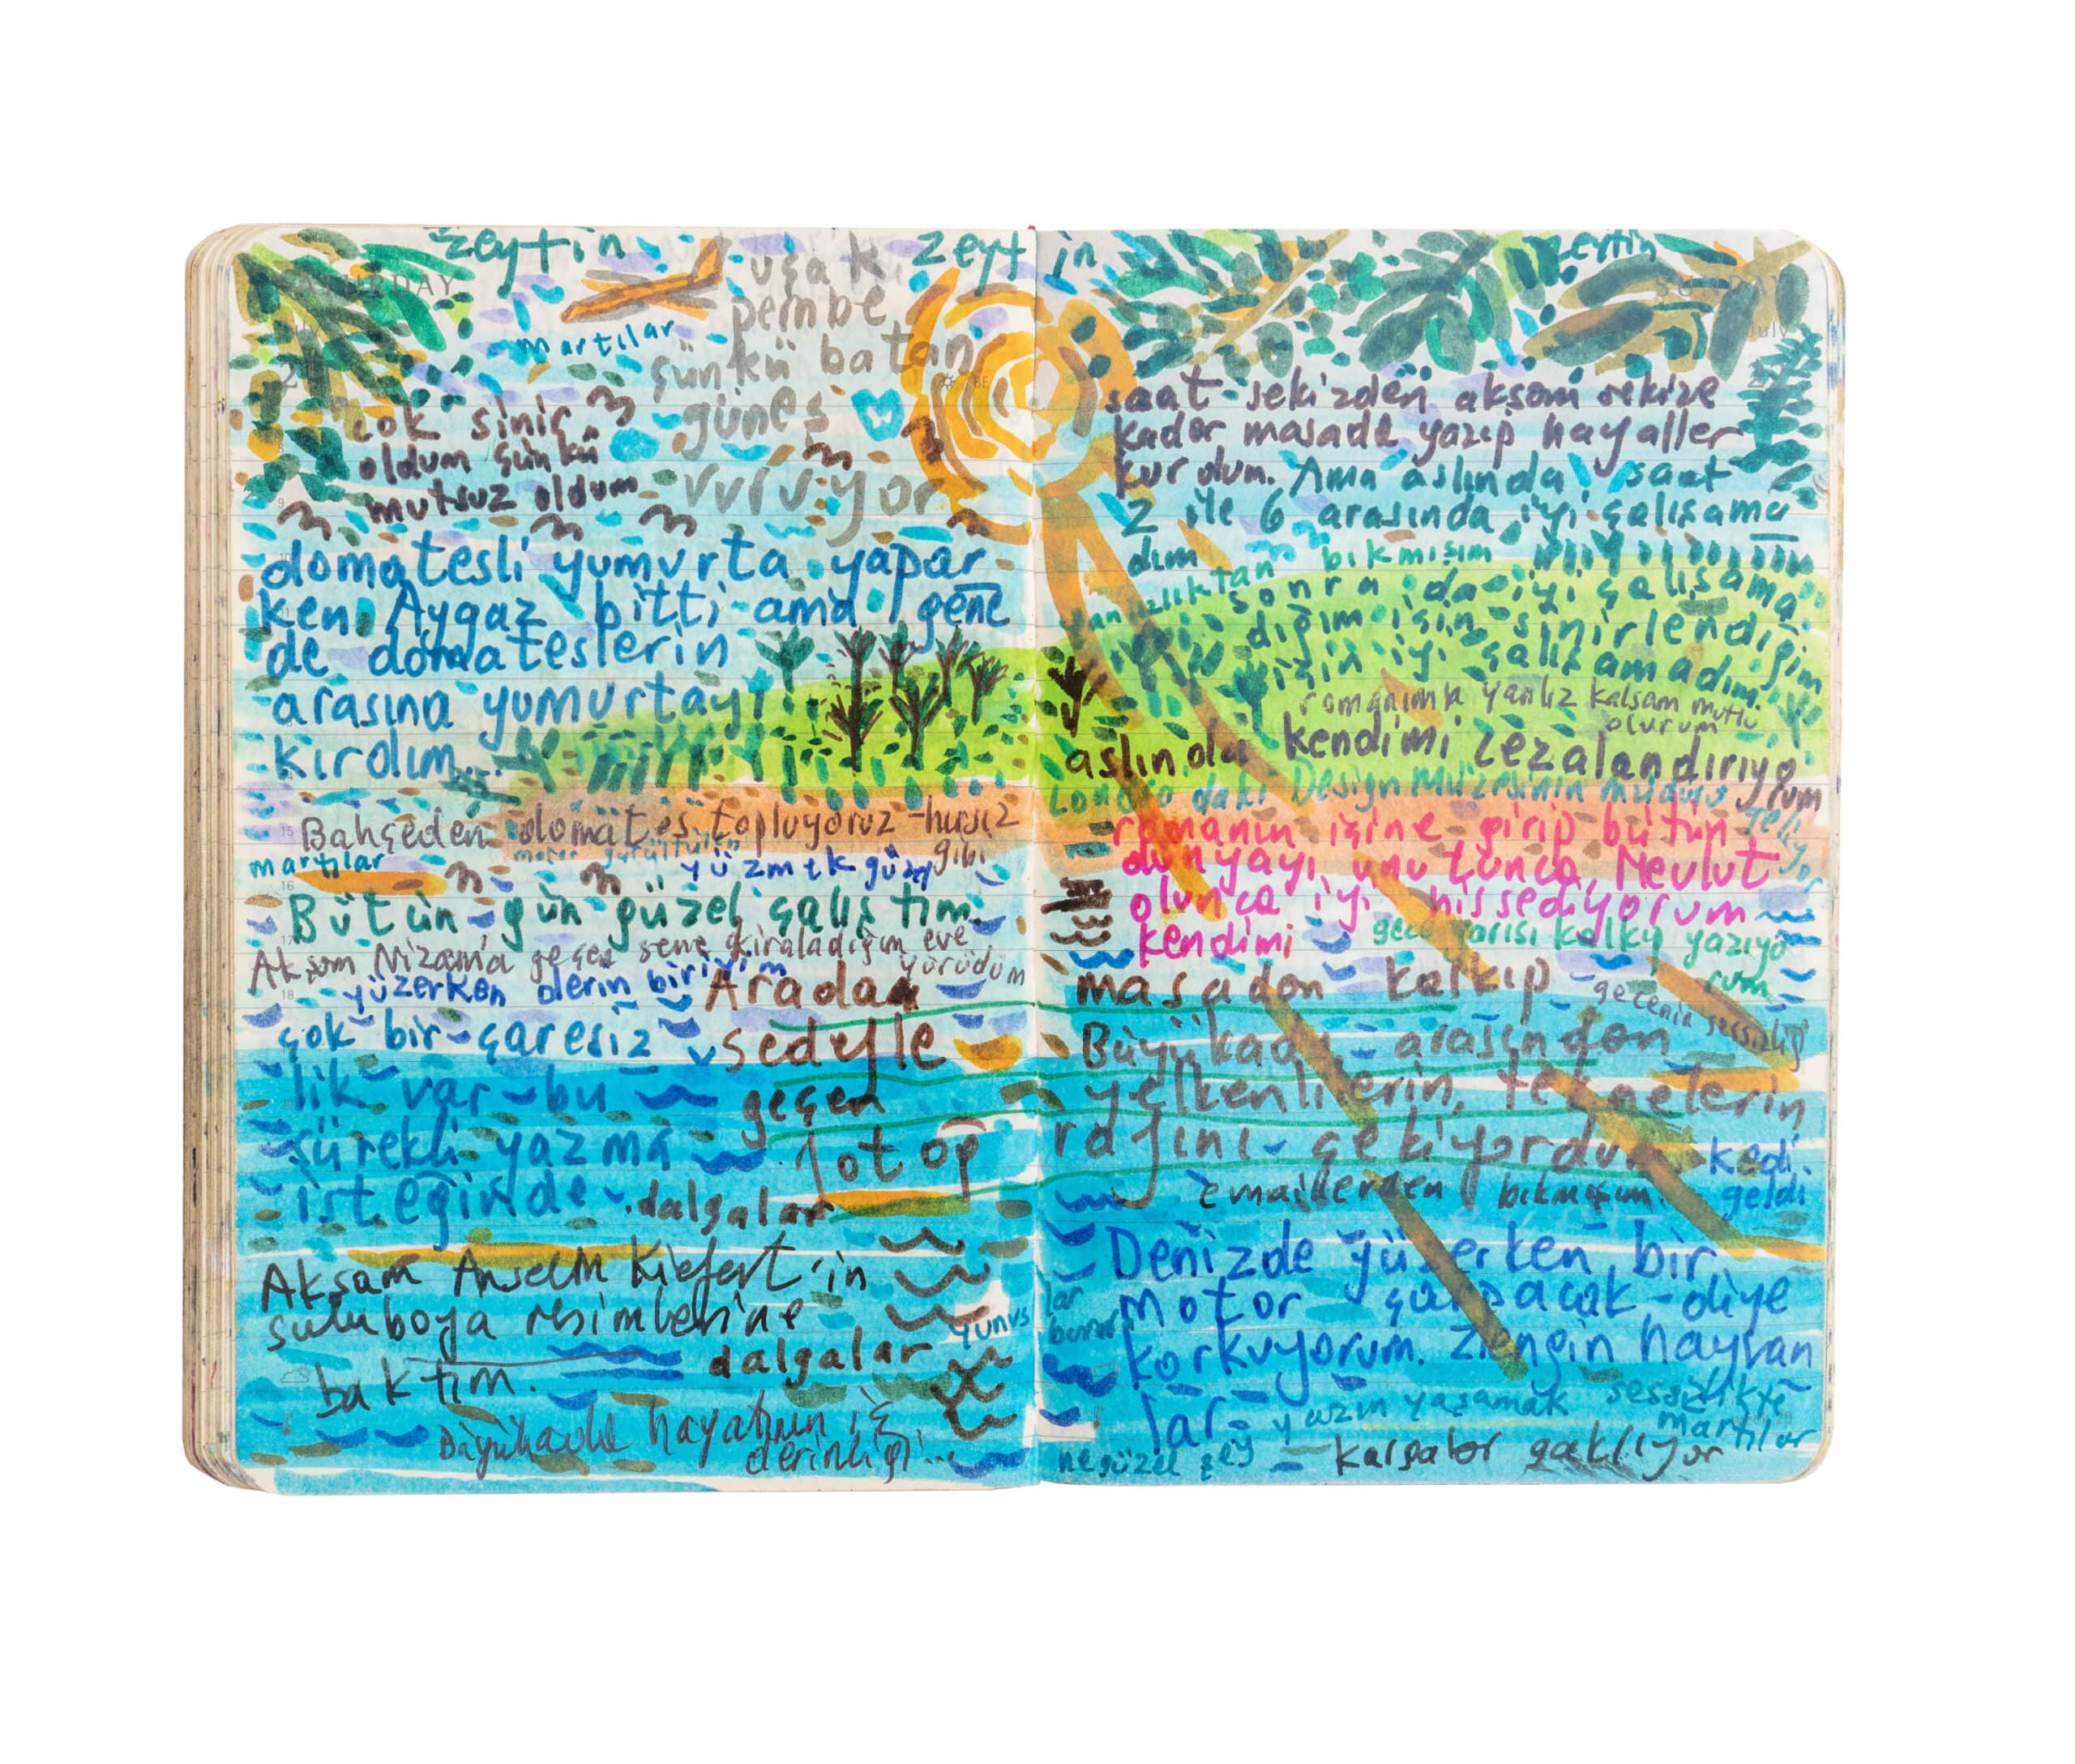 zeytin
uçak
pembe
martılar
çünkü batan
güneş
vuruyor
çok sinir
oldum çünkü
mutsuz oldum
domatesli yumurta yapar
ken Aygaz bitti ama gene
de domateslerin
arasına yumurtayı
kırdım...
Bahçeden domates topluyoruz hırsız
gibi
martılar
yüzmek güzel
Bütün gün güzel çalıştım.
Akşam Nizam'a geçen sene kiraladığım eve
yürüdüm
yüzerken derin biriyim
çok bir çaresiz
lik var bu
sürekli yazma
isteğinde.
Aradan
Sedefle
geçen
dalgalar
Akşam Anselm Kiefert'in
suluboya resimlerine
baktım.
dalgalar
Büyükada hayatının iç
derinliği...
zeytin
zeytin
SUNDAY
July
saat sekizden akşam sekize
kadar masada yazıp hayaller
kurdum. Ama aslında saat
2 ile 6 arasında iyi çalışama
dım
bıkmışım
sonra da iyi çalışama
dığım için sinirlendiğim
için iyi çalışamadım.
romanımla yanlız kalsam mutlu
olurum
aslında kendimi cezalandırıyo
rum
Londra daki Design Müzesinin müdürü
geliyor
romanın içine girip bütün
dünyayı unutunca, Mevlut
olunca iyi hissediyorum
kendimi
gece yarısı kalkıp yazıyo
rum
masadan kalkıp
gecenin sessizliği
Büyükada arasından
yelkenlilerin, teknelerin
fotoğrafını çekiyordum
kedi
geldi
emaillerden bıkmışım.
Denizde yüzerken bir
motor çarpacak diye
korkuyorum. Zengin hayvan
lar
yunuslar
yazın yaşamak sessizlikte
ne güzel şey
martılar
Kargalar gaklıyor